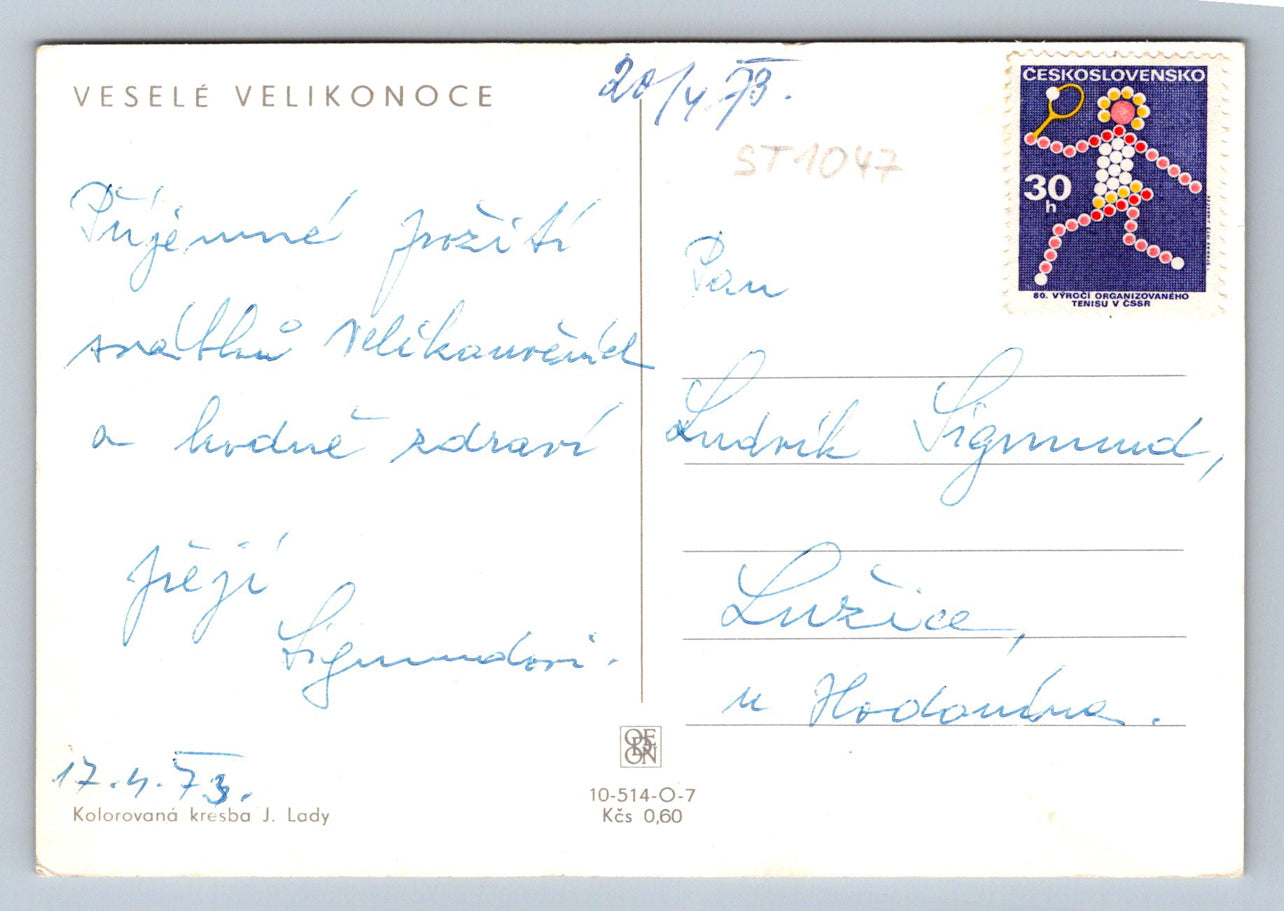 VESELÉ VELIKONOCE
20/4 73.
ST1047
ČESKOSLOVENSKO
30
h
80. VÝROČÍ ORGANIZOVANÉHO
TENISU V ČSSR
Příjemné prožití
svátků velikonočních
a hodně zdraví
přejí
Sigmundovi.
17.4.73.
Kolorovaná kresba J. Lady
ODEON
10-514-O-7
Kčs 0,60
Pan
Ludvík Sigmund,
Lužice,
u Hodonína.